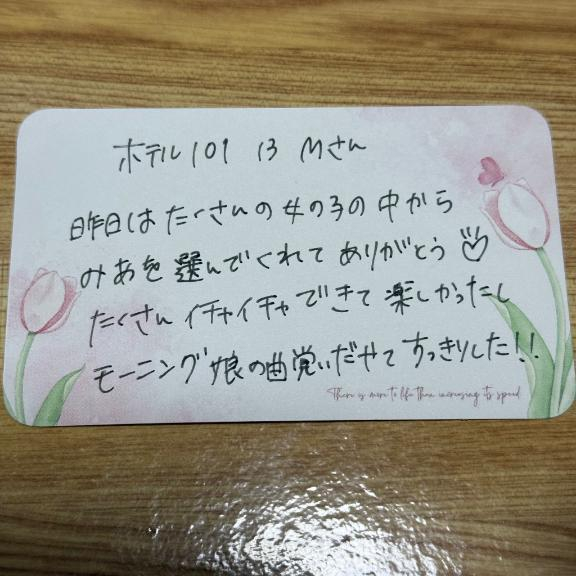 ホテル101 13 Mさん
昨日はたくさんの女の子の中から
みあを選んでくれてありがとう♡
たくさんイチャイチャできて楽しかったし
モーニング娘の曲覚いだやてすっきりした!!
There is more to life than increasing its speed